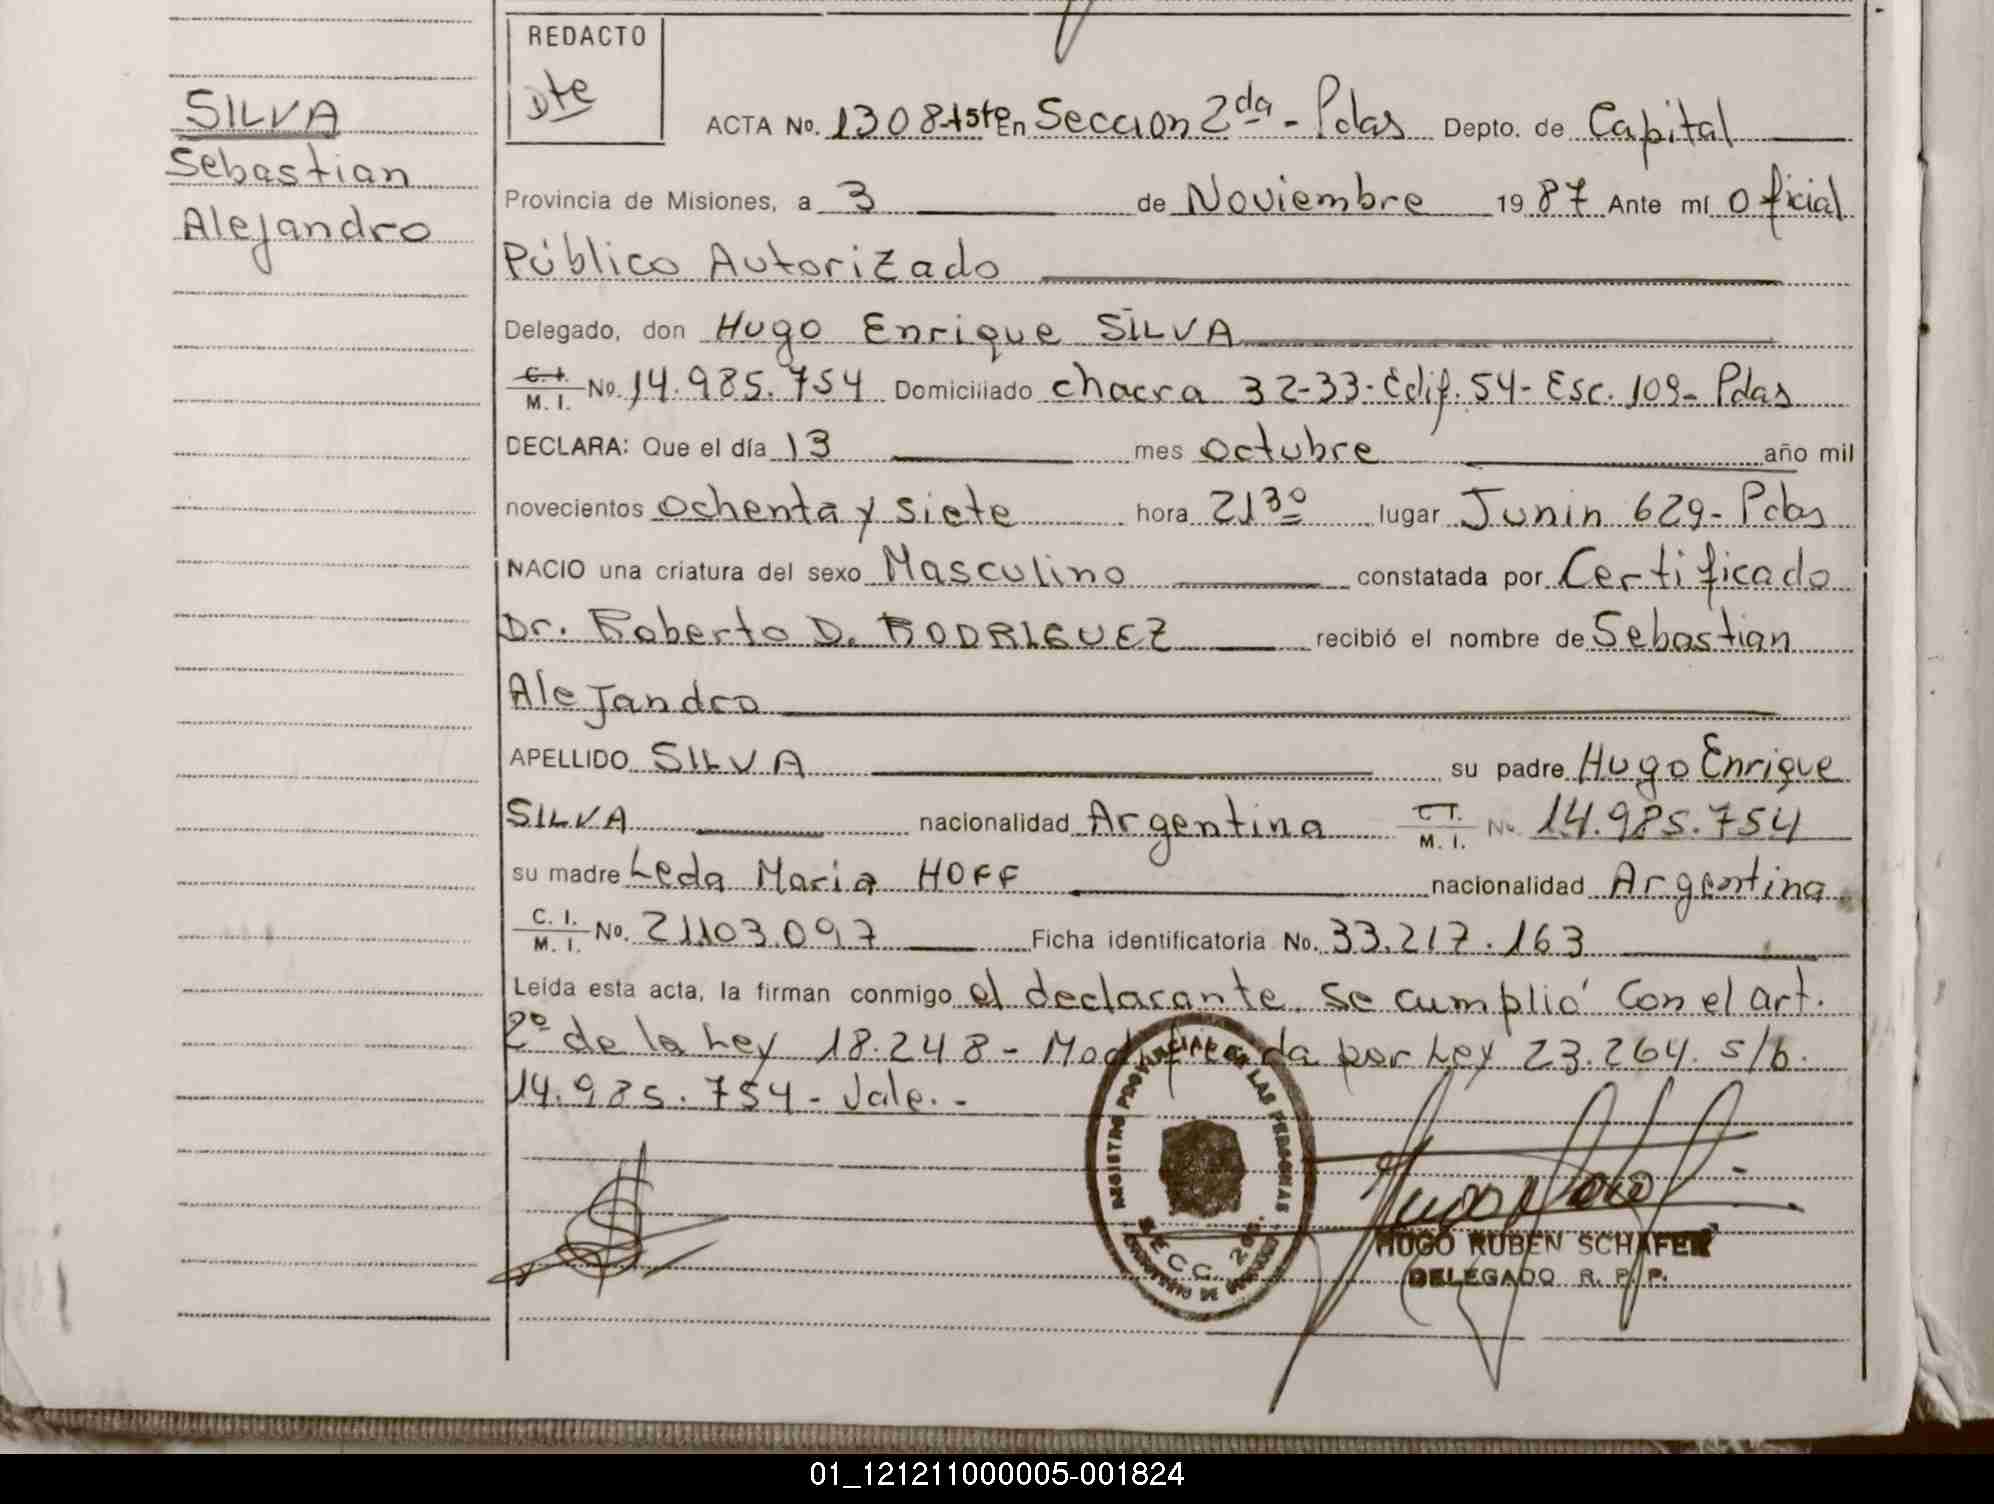 REDACTO
Dte
SILVA
Sebastian
Alejandro
ACTA No. 1308 tste En Seccion 2da - Pdas Depto. de Capital
Provincia de Misiones, a 3 de Noviembre 1987 Ante mí Oficial
Público Autorizado
Delegado, don Hugo Enrique SILVA
C. I. M. I. No. 14.985.754 Domiciliado chacra 32-33-Edif. 54- Esc. 109- Pdas
DECLARA: Que el día 13 mes octubre año mil
novecientos ochenta y siete hora 21 30 lugar Junin 629- Pdas
NACIO una criatura del sexo Masculino constatada por Certificado
Dr. Roberto D. RODRIGUEZ recibió el nombre de Sebastian
Alejandro
APELLIDO SILVA su padre Hugo Enrique
SILVA nacionalidad Argentina C.I. M. I. No. 14.985.754
su madre Leda Maria HOFF nacionalidad Argentina
C. I. M. I. No. 21.103.097 Ficha identificatoria No. 33.217.163
Leída esta acta, la firman conmigo el declarante. Se cumplió con el art.
2º de la Ley 18.248 - Modificada por Ley 23.264. s/b.
14.985.754 - Vale. -
REGISTRO PROVINCIAL DE LAS PERSONAS
SECC. 2da.
HUGO RUBEN SCHAFER
DELEGADO R. P. P.
01_121211000005-001824